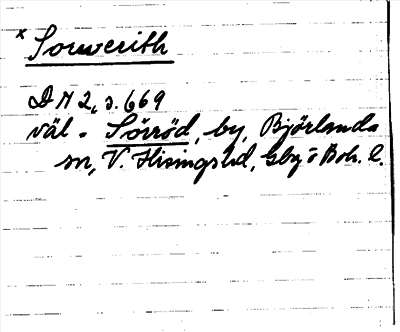 × Sorwerith
DN 2, s. 669
väl = Sörröd, by, Björlanda
sn, V. Hisings hd, Gbg o Boh. l.